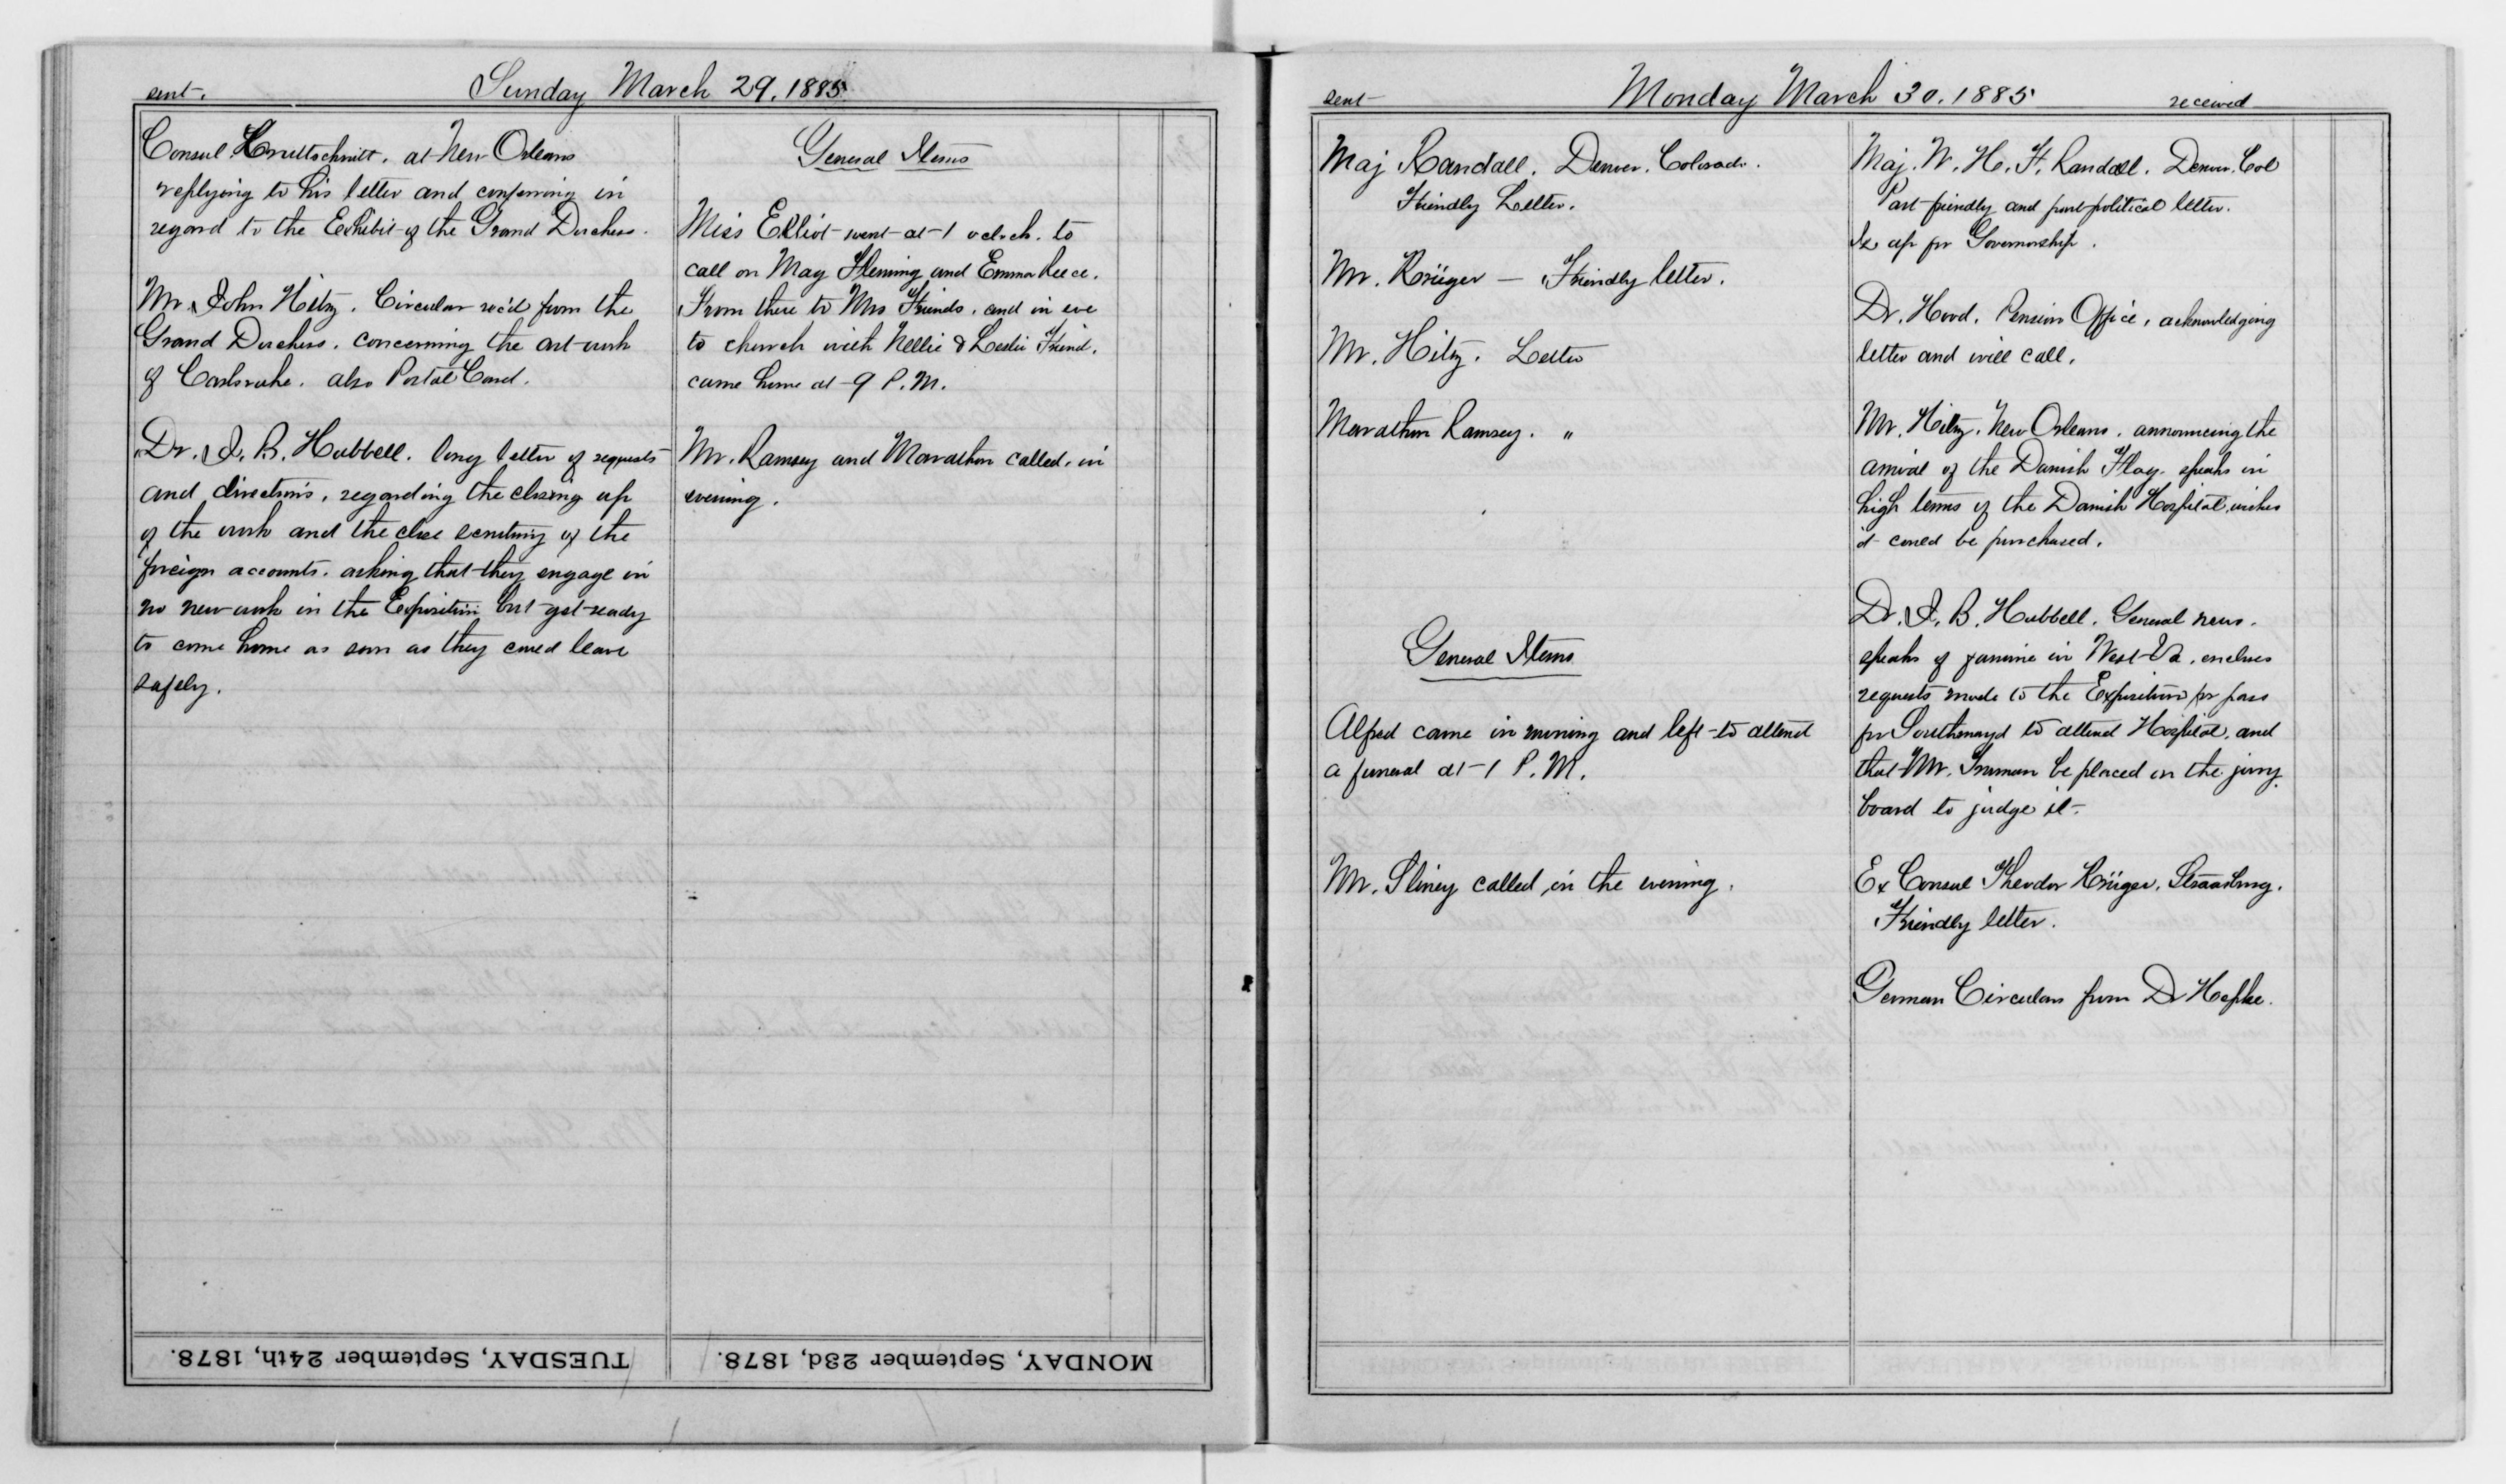 sent.
Sunday March 29. 1885
Consul Kruttschnitt. at New Orleans
replying to his letter and conferring in
regard to the Exhibit of the Grand Duchess.
Mr. John Hitz. Circular rec'd from the
Grand Duchess. concerning the art work
of Carlsruhe. also Postal Card.
Dr. J. B. Hubbell. long letter of requests
and directions, regarding the closing up
of the work and the close scrutiny of the
foreign accounts. asking that they engage in
no new work in the Exposition but get ready
to come home as soon as they could leave
safely.
General Items
Miss Elliot went at 1 o'clock. to
call on May Fleming and Emma Reece.
From there to Mrs Friends. and in eve
to church with Nellie & Leslie Friend.
came home at 9 P.M.
Mr. Ramsey and Marathon called in
evening.
TUESDAY, September 24th, 1878.
MONDAY, September 23d, 1878.
sent
Monday March 30. 1885
received
Maj Randall. Denver. Colorado.
Friendly Letter.
Mr. Krüger — Friendly letter.
Mr. Hitz. Letter
Marathon Ramsey. "
General Items
Alfred came in morning and left to attend
a funeral at 1 P.M.
Mr. Sliney called in the evening.
Maj. W. H. H. Randall. Denver. Col
Part friendly and part political letter.
Is up for Governorship.
Dr. Hood. Pension Office, acknowledging
letter and will call.
Mr. Hitz. New Orleans. announcing the
arrival of the Danish Flag. speaks in
high terms of the Danish Hospital, wishes
it could be purchased.
Dr. J. B. Hubbell. General news.
speaks of famine in West Va. encloses
requests made to the Exposition for pass
for Southmayd to attend Hospital, and
that Mr. Inman be placed on the jury
board to judge it.
Ex Consul Theodor Krüger. Strassburg.
Friendly letter.
German Circulars from Dr Hepke.